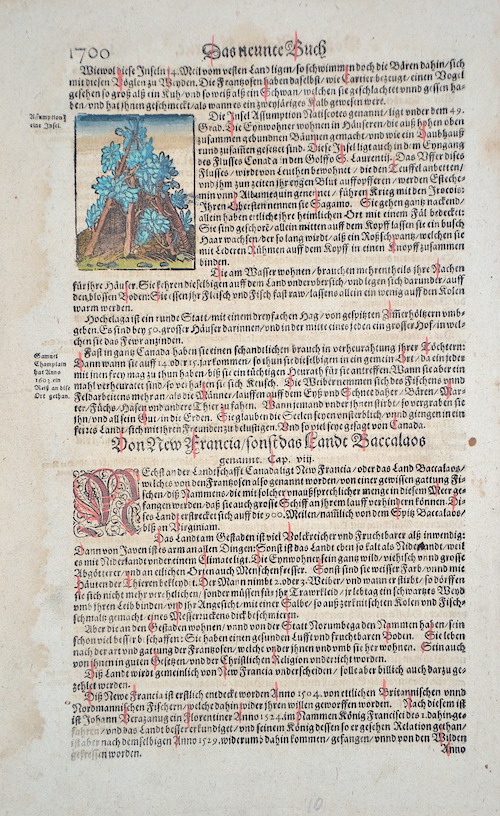 1700
Das neunte Buch
Wiewol diese Inseln 14. Meil vom vesten Land ligen/ so schwimmen doch die Bären dahin/ sich
mit diesen Vöglen zu Weyden. Die Frantzosen haben daselbst/ wie Cartier bezeugt/ einen Vogel
gesehen so groß alß ein Kuh/ vnd so weiß alß ein Schwan/ welchen sie geschlachtet vnnd gessen ha-
ben/ vnd hat jhnen geschmeckt/ als wann es ein zweyjäriges Kalb gewesen were.
Assumption
eine Insel.
Die Insel Assumption Natiscotec genannt/ ligt vnder dem 49.
Grad. Die Eynwohner wohnen in Häuseren/ die auß hohen oben
zusammen gebundnen Bäumen gemacht/ vnd wie ein Daubhauß
rund zu fassten gesetzet sind. Diese Insel ligt auch in dem Eyngang
des Flusses Conada in den Golffo S. Laurentij. Das Vffer dises
Flusses/ wird von Leuthen bewohnet/ die den Teuffel anbetten/
vnd jhm zun zeiten jhr eygen Blut auffopfferen/ werden Esteche-
min vnd genennet/ führen Krieg mit den Irocois:
Ihren Obersten nennen sie Sagamo. Sie gehen gantz nackend/
allein haben etliche jhre heimlichen Ort mit einem Fäl bedecket:
Sie sind geschoren/ allein mitten auff dem Kopff lassen sie ein busch
Haar wachsen/ der so lang wird/ alß ein Roßschwantz/ welchen sie
mit Lederen Rühmen auff dem Kopff in einen Knopff zusammen
binden.
Die am Wasser wohnen/ brauchen mehrentheils jhre Nachen
für jhre Häuser. Sie kehren dieselbigen auff dem Land vnder vbersich/ vnd legen sich darunder/ auff
den blossen Boden: Sie essen jhr Fleisch vnd Fisch fast raw/ lassens allein ein wenig auff den Kolen
warm werden.
Hochelaga ist ein runde Statt/ mit einem dreyfachen Hag/ von gespitzten Zimerhöltzern vmb-
geben. Es sind bey 50. grosser Häuser darinnen/ vnd in der mitte eines jeden ein grosser Hof/ in wel-
chen sie das Fewr anzinden.
Samuel
Champlain
hat Anno
1603. ein
Reiß an dise
Ort gethan.
Fast in gantz Canada haben sie einen schandtlichen brauch in verheurahtung jhrer Töchtern:
Dann wann sie auff 14. oder 15. Jar kommen/ so thun sie dieselbigen in ein gemein Ort/ da ein jeder
mit inen frey mag zu thun haben/ biß sie ein tüchtigen Heurath für sie antreffen. Wann sie aber ein
mahl verheuratet sind/ so verhalten sie sich Keusch. Die Weiber nemmen sich des Fischens vnnd
Feldarbeitens mehr an/ als die Männer/ lauffen auff dem Eyß vnd Schnee daher/ Bären/ Mar-
ter/ Füchs/ Hasen vnd andere Thier zu fahen. Wann jemand vnder jhnen stirbt/ so vergraben sie
jhn/ vnd all sein Gut in die Erden. Sie glauben die Seelen seyen vnsterblich/ vnnd giengen in ein
ferres Landt/ sich mit jhren Freunden zu belustigen. Vnd so viel seye gesagt von Canada.
Von New Francia/ sonst das Landt Baccalaos
genannt. Cap. viij.
NEchst an der Landtschafft Canada ligt New Francia/ oder das Land Baccalaos/
welches von den Frantzosen also genannt worden/ von einer gewissen gattung Fi-
schen/ diß Nammens/ die mit solcher vnaußsprechlicher menge in diesem Meer ge-
fangen werden/ daß sie auch grosse Schiff an jhrem lauff verhindern können. Di-
ses Land erstrecket sich auff die 900. Meilen/ namlich von dem Spitz Baccalaos/
biß gen Virginiam.
Das Landt am Gestaden ist viel Volckreicher vnd Fruchtbarer als inwendig:
Dann von Javen ist es arm an allen Dingen: Sonst ist das Landt eben so kalt als Niderlandt/ weil
es mit Niderland vnder einem Climate ligt. Die Eynwohner sein gantz wild/ viehisch vnd grosse
Abgötterer/ vnd an etlichen Orten auch Menschenfresser. Sonst sind sie weisser Farb/ vnnd mit
Häuten der Thieren bekleydt. Der Mann nimbt 2. oder 3. Weiber/ vnd wann er stirbt/ so dörffen
sie sich nicht mehr verehelichen/ sonder müssen für jhr Trawrkleid/ jr lebtag ein schwartzes Weyd
vmb jhren Leib binden/ vnd jhr Angesicht mit einer Salbe/ so auß zerknischten Kolen vnd Fisch-
schmaltz gemacht/ eines Messerruckens dick beschmieren.
Aber die an den Gestaden wohnen/ vnd von der Statt Norumbega den Nammen haben/ sein
schon viel besser beschaffen: Sie haben einen gesunden Lufft vnd fruchtbaren Boden. Sie leben
nach der art vnd gattung der Frantzosen/ welche vnder jhnen vnd vmb sie her wohnen. Sein auch
von jhnen in guten Gesetzen/ vnd der Christlichen Religion vnderricht worden.
Diß Landt wird gemeinlich von New Francia vnderscheiden/ solle aber billich auch darzu ge-
zehlet werden.
Diß Newe Francia ist erstlich entdeckt worden Anno 1504. von etlichen Britannischen vnnd
Nordmannischen Fischern/ welche dahin wider jhren willen geworffen worden. Nach diesem ist
ist Johann Verazanus ein Florentiner Anno 1524. im Nammen König Francisci des 1. dahin ge-
fahren/ vnd das Landt besser erkundiget/ vnd seinem König dessen so er gesehen Relation gethan/
ist aber nach demselbigen Anno 1529. widerumb dahin kommen/ gefangen/ vnnd von den Wilden
gefressen worden.
Anno
10